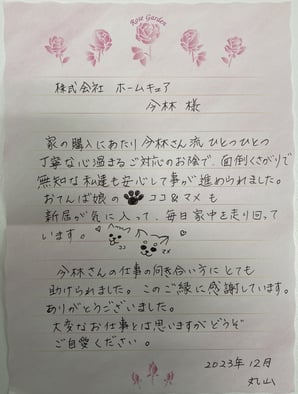 Rose Garden
株式会社 ホームキュア
今林 様
家の購入にあたり今林さん流ひとつひとつ
丁寧な心温まるご対応のお陰で、面倒くさがりで
無知な私達も安心して事が進められました。
おてんば娘の ココ&マメも
新居が気に入って、毎日家中を走り回って
います。
ココ マメ
今林さんの仕事の向き合い方にとても
助けられました。このご縁に感謝しています。
ありがとうございました。
大変なお仕事とは思いますがどうぞ
ご自愛ください。
2023年12月
丸山